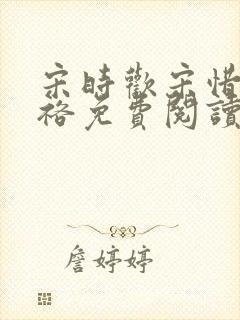 宋時歡宋惜
格免費閱讀
詹婷婷